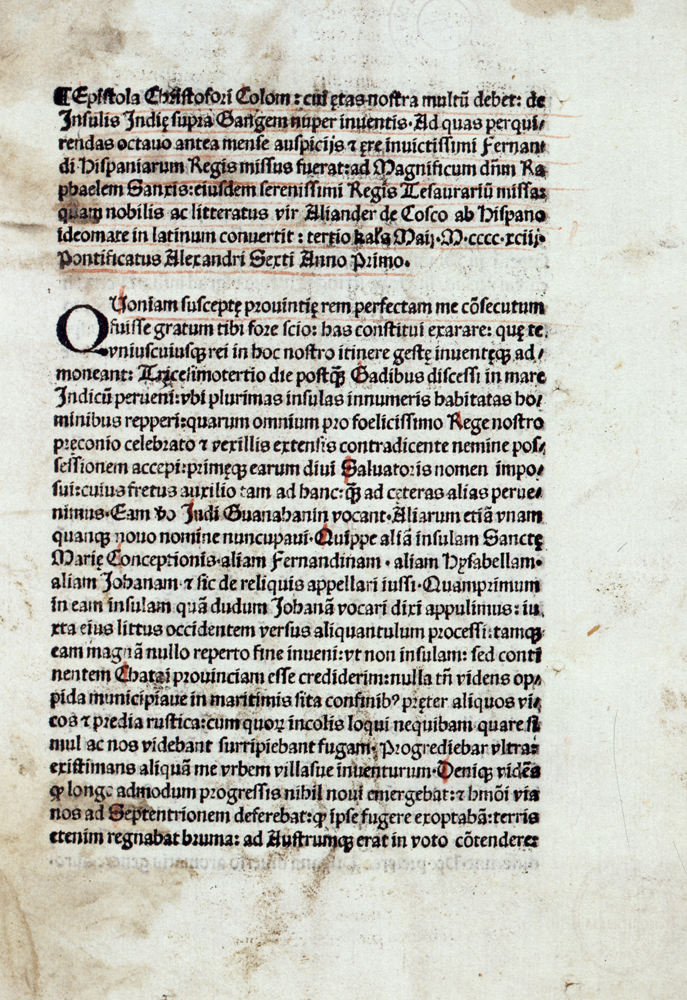 ¶ Epistola Christofori Colom: cui ętas nostra multū debet: de
Insulis Indię supra Gangem nuper inuentis. Ad quas perqui/
rendas octauo antea mense auspicijs ⁊ ęre inuictissimi Fernan
di Hispaniarum Regis missus fuerat: ad Magnificum dñm Ra
phaelem Sanxis: eiusdem serenissimi Regis Tesaurariū missa:
quam nobilis ac litteratus vir Aliander de Cosco ab Hispano
ideomate in latinum conuertit: tertio kaĺs Maij. M.cccc.xciij.
Pontificatus Alexandri Sexti Anno Primo.
QUoniam susceptę prouintię rem perfectam me cōsecutum
fuisse gratum tibi fore scio: has constitui exarare: quę te
vniuscuiusqꝫ rei in hoc nostro itinere gestę inuentęqꝫ ad/
moneant: Tricesimotertio die postqꝫ̄ Gadibus discessi in mare
Indicū perueni: vbi plurimas insulas innumeris habitatas ho/
minibus repperi: quarum omnium pro foelicissimo Rege nostro
pręconio celebrato ⁊ vexillis extensis contradicente nemine pos/
sessionem accepi: primęqꝫ earum diui Saluatoris nomen impo/
sui: cuius fretus auxilio tam ad hanc: qꝫ̄ ad cęteras alias perue/
nimus. Eam v̄o Indi Guanahanin vocant. Aliarum etiā vnam
quanqꝫ nouo nomine nuncupaui. Quippe aliā insulam Sanctę
Marię Conceptionis. aliam Fernandinam. aliam Hysabellam.
aliam Johanam. ⁊ sic de reliquis appellari iussi. Quamprimum
in eam insulam quā dudum Johanā vocari dixi appulimus: iu
xta eius littus occidentem versus aliquantulum processi: tamqꝫ
eam magnā nullo reperto fine inueni: vt non insulam: sed conti
nentem Chatai prouinciam esse crediderim: nulla tñ videns op/
pida municipiaue in maritimis sita confinibꝰ pręter aliquos vi/
cos ⁊ predia rustica: cum quoꝝ incolis loqui nequibam quare si
mul ac nos videbant surripiebant fugam. Progrediebar vltra:
existimans aliquā me vrbem villasue inuenturum. Deniqꝫ vidēs
ꝙ longe admodum progressis nihil noui emergebat: ⁊ hmōi via
nos ad Septentrionem deferebat: ꝙ ipse fugere exoptabā: terris
etenim regnabat bruma: ad Austrumqꝫ erat in voto cōtendere: